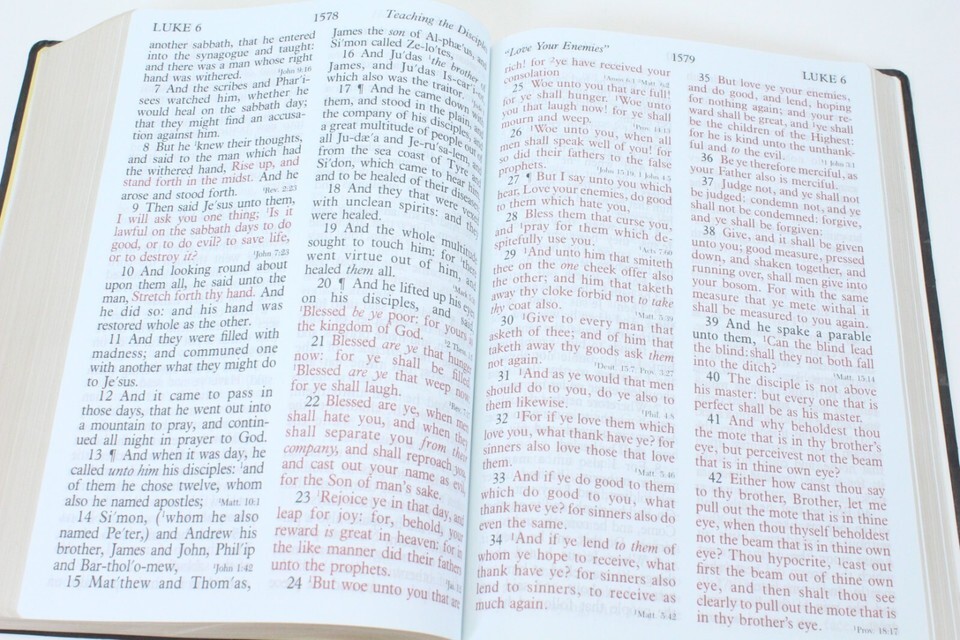 LUKE 6
1578
Teaching the Disciples
another sabbath, that he entered
into the synagogue and taught:
and there was a man whose right
hand was withered. ¹John 9:16
7 And the scribes and Phar′i-
sees watched him, whether he
would heal on the sabbath day;
that they might find an accusa-
tion against him.
8 But he ¹knew their thoughts,
and said to the man which had
the withered hand, Rise up, and
stand forth in the midst. And he
arose and stood forth. ¹Rev. 2:23
9 Then said Je′sus unto them,
I will ask you one thing; ¹Is it
lawful on the sabbath days to do
good, or to do evil? to save life,
or to destroy it? ¹John 7:23
10 And looking round about
upon them all, he said unto the
man, Stretch forth thy hand. And
he did so: and his hand was
restored whole as the other.
11 And they were filled with
madness; and communed one
with another what they might do
to Je′sus.
12 And it came to pass in
those days, that he went out into
a mountain to pray, and contin-
ued all night in prayer to God.
13 ¶ And when it was day, he
called unto him his disciples: ¹and
of them he chose twelve, whom
also he named apostles; ¹Matt. 10:1
14 Si′mon, (¹whom he also
named Pe′ter,) and Andrew his
brother, James and John, Phil′ip
and Bar-thol′o-mew, ¹John 1:42
15 Mat′thew and Thom′as,
James the son of Al-phæ′us, and
Si′mon called Ze-lo′tes,
16 And Ju′das ¹the brother of
James, and Ju′das Is-car′i-ot,
which also was the traitor.
17 ¶ And he came down with
them, and stood in the plain, and
the company of his disciples, and
a great multitude of people out of
all Ju-dæ′a and Je-ru′sa-lem, and
from the sea coast of Tyre and
Si′don, which came to hear him,
and to be healed of their diseases;
18 And they that were vexed
with unclean spirits: and they
were healed.
19 And the whole multitude
sought to touch him: for there
went virtue out of him, and
healed them all.
20 ¶ And he lifted up his eyes
on his disciples, and said,
¹Blessed be ye poor: for yours is
the kingdom of God.
21 Blessed are ye that hunger
now: for ye shall be filled.
²Blessed are ye that weep now:
for ye shall laugh.
22 Blessed are ye, when men
shall hate you, and when they
shall separate you from their
company, and shall reproach you,
and cast out your name as evil,
for the Son of man's sake.
23 ¹Rejoice ye in that day, and
leap for joy: for, behold, your
reward is great in heaven: for in
the like manner did their fathers
unto the prophets.
24 ¹But woe unto you that are
"Love Your Enemies"
1579
LUKE 6
rich! for ²ye have received your
consolation
25 Woe unto you that are full!
for ye shall hunger. ¹Woe unto
you that laugh now! for ye shall
mourn and weep. ¹Prov. 14:13
26 ¹Woe unto you, when all
men shall speak well of you! for
so did their fathers to the false
prophets. ¹John 15:19; 1 John 4:5
27 ¶ But I say unto you which
hear, Love your enemies, do good
to them which hate you,
28 Bless them that curse you,
and ¹pray for them which de-
spitefully use you. ¹Acts 7:60
29 ¹And unto him that smiteth
thee on the one cheek offer also
the other; and him that taketh
away thy cloke forbid not to take
thy coat also. ¹Matt. 5:39
30 ¹Give to every man that
asketh of thee; and of him that
taketh away thy goods ask them
not again. ¹Deut. 15:7; Prov. 3:27
31 ¹And as ye would that men
should do to you, do ye also to
them likewise. ¹Phil. 4:8
32 ¹For if ye love them which
love you, what thank have ye? for
sinners also love those that love
them. ¹Matt. 5:46
33 And if ye do good to them
which do good to you, what
thank have ye? for sinners also do
even the same.
34 ¹And if ye lend to them of
whom ye hope to receive, what
thank have ye? for sinners also
lend to sinners, to receive as
much again. ¹Matt. 5:42
35 But love ye your enemies,
and do good, and lend, hoping
for nothing again; and your re-
ward shall be great, and ¹ye shall
be the children of the Highest:
for he is kind unto the unthank-
ful and to the evil. ¹1 John 3:1
36 Be ye therefore merciful, as
your Father also is merciful.
37 Judge not, and ye shall not
be judged: condemn not, and ye
shall not be condemned: forgive,
and ye shall be forgiven:
38 Give, and it shall be given
unto you; good measure, pressed
down, and shaken together, and
running over, shall men give into
your bosom. For with the same
measure that ye mete withal it
shall be measured to you again.
39 And he spake a parable
unto them, ¹Can the blind lead
the blind: shall they not both fall
into the ditch? ¹Matt. 15:14
40 The disciple is not above
his master: but every one that is
perfect shall be as his master.
41 And why beholdest thou
the mote that is in thy brother's
eye, but perceivest not the beam
that is in thine own eye?
42 Either how canst thou say
to thy brother, Brother, let me
pull out the mote that is in thine
eye, when thou thyself beholdest
not the beam that is in thine own
eye? Thou hypocrite, ¹cast out
first the beam out of thine own
eye, and then shalt thou see
clearly to pull out the mote that is
in thy brother's eye. ¹Prov. 18:17